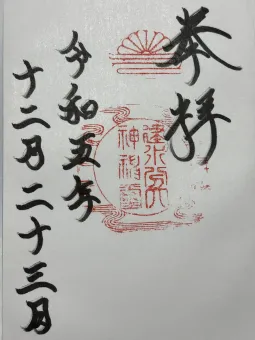 奉拝
建水分
神社璽
令和五年
十二月二十三日